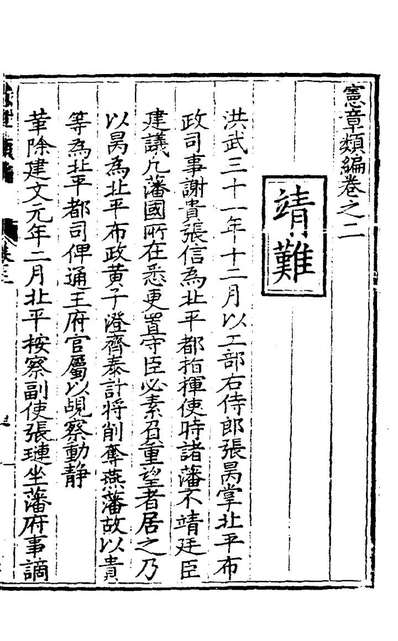 憲章類編卷之二
靖難
洪武三十一年十二月以工部右侍郎張昺掌北平布
政司事謝貴張信為北平都指揮使時諸藩不靖廷臣
建議凡藩國所在悉更置守臣必素負重望者居之乃
以昺為北平布政黃子澄齊泰計將削奪燕藩故以貴
等為北平都司俾通王府官屬以覘察動靜
革除建文元年二月北平按察副使張璉坐藩府事謫